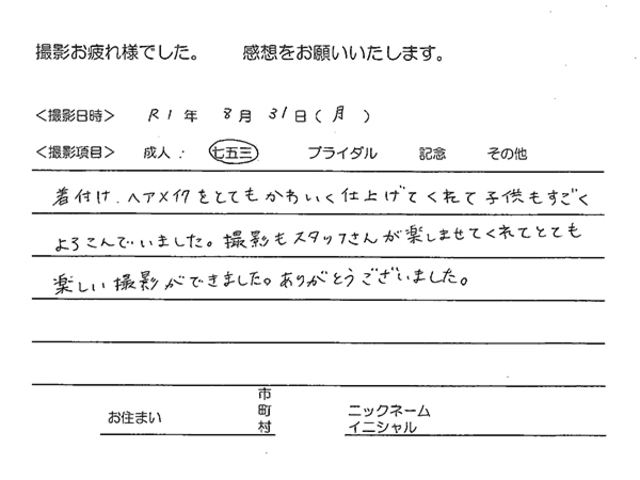 撮影お疲れ様でした。　感想をお願いいたします。
＜撮影日時＞ R1年 8月31日（月）
＜撮影項目＞ 成人： 七五三 ブライダル 記念 その他
着付け、ヘアメイクをとてもかわいく仕上げてくれて子供もすごく
よろこんでいました。撮影もスタッフさんが楽しませてくれてとても
楽しい撮影ができました。ありがとうございました。
お住まい 市町村 ニックネーム
イニシャル